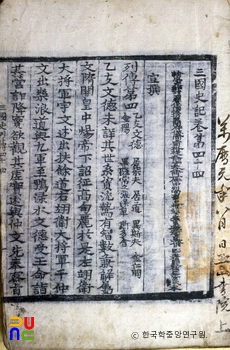 三國史記卷第四十四
宣撰
列傳第四 乙支文德 居柒夫 居道 異斯夫 金仁問 金陽 黑齒常之 張保皐 斯多含
乙支文德未詳其世系資沉鷙有智數兼解屬
文隋開皇中煬帝下詔征高句麗於是左翊衛
大將軍宇文述出扶餘道右翊衛大將軍于仲
文出樂浪道與九軍至鴨淥水文德受王命詣
其營詐降實欲觀其虛實述與仲文先奉密旨
萬曆元年八月日玉山書院上
ⓒ 한국학중앙연구원.